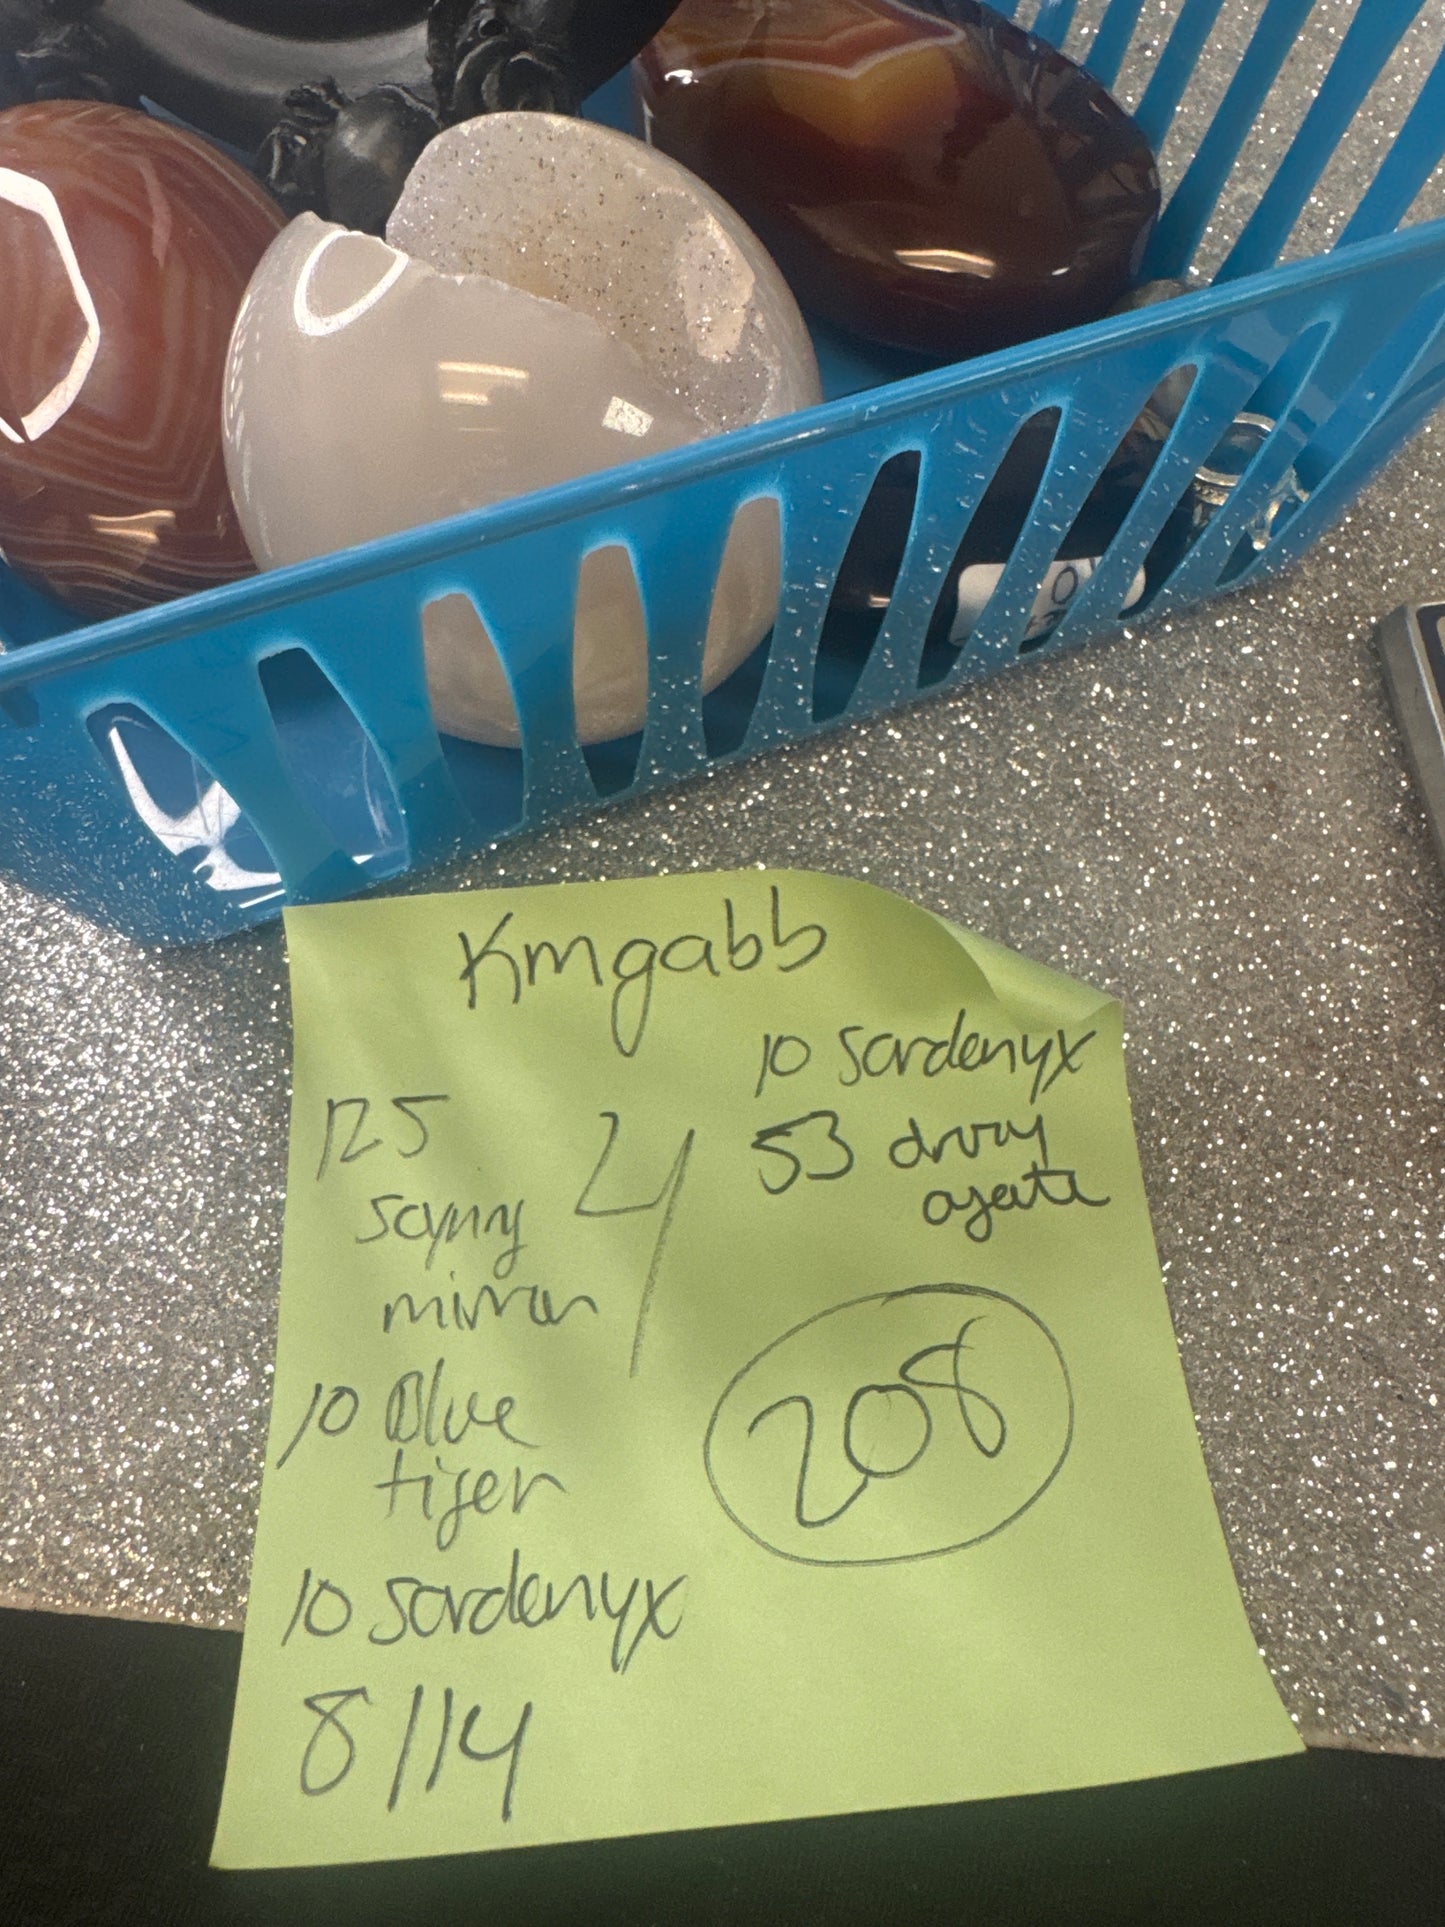 Kmgabb
125
scrying
mirror
10 Blue
tiger
10 Sardonyx
8/14
4
10 Sardonyx
53 druzy
agate
208